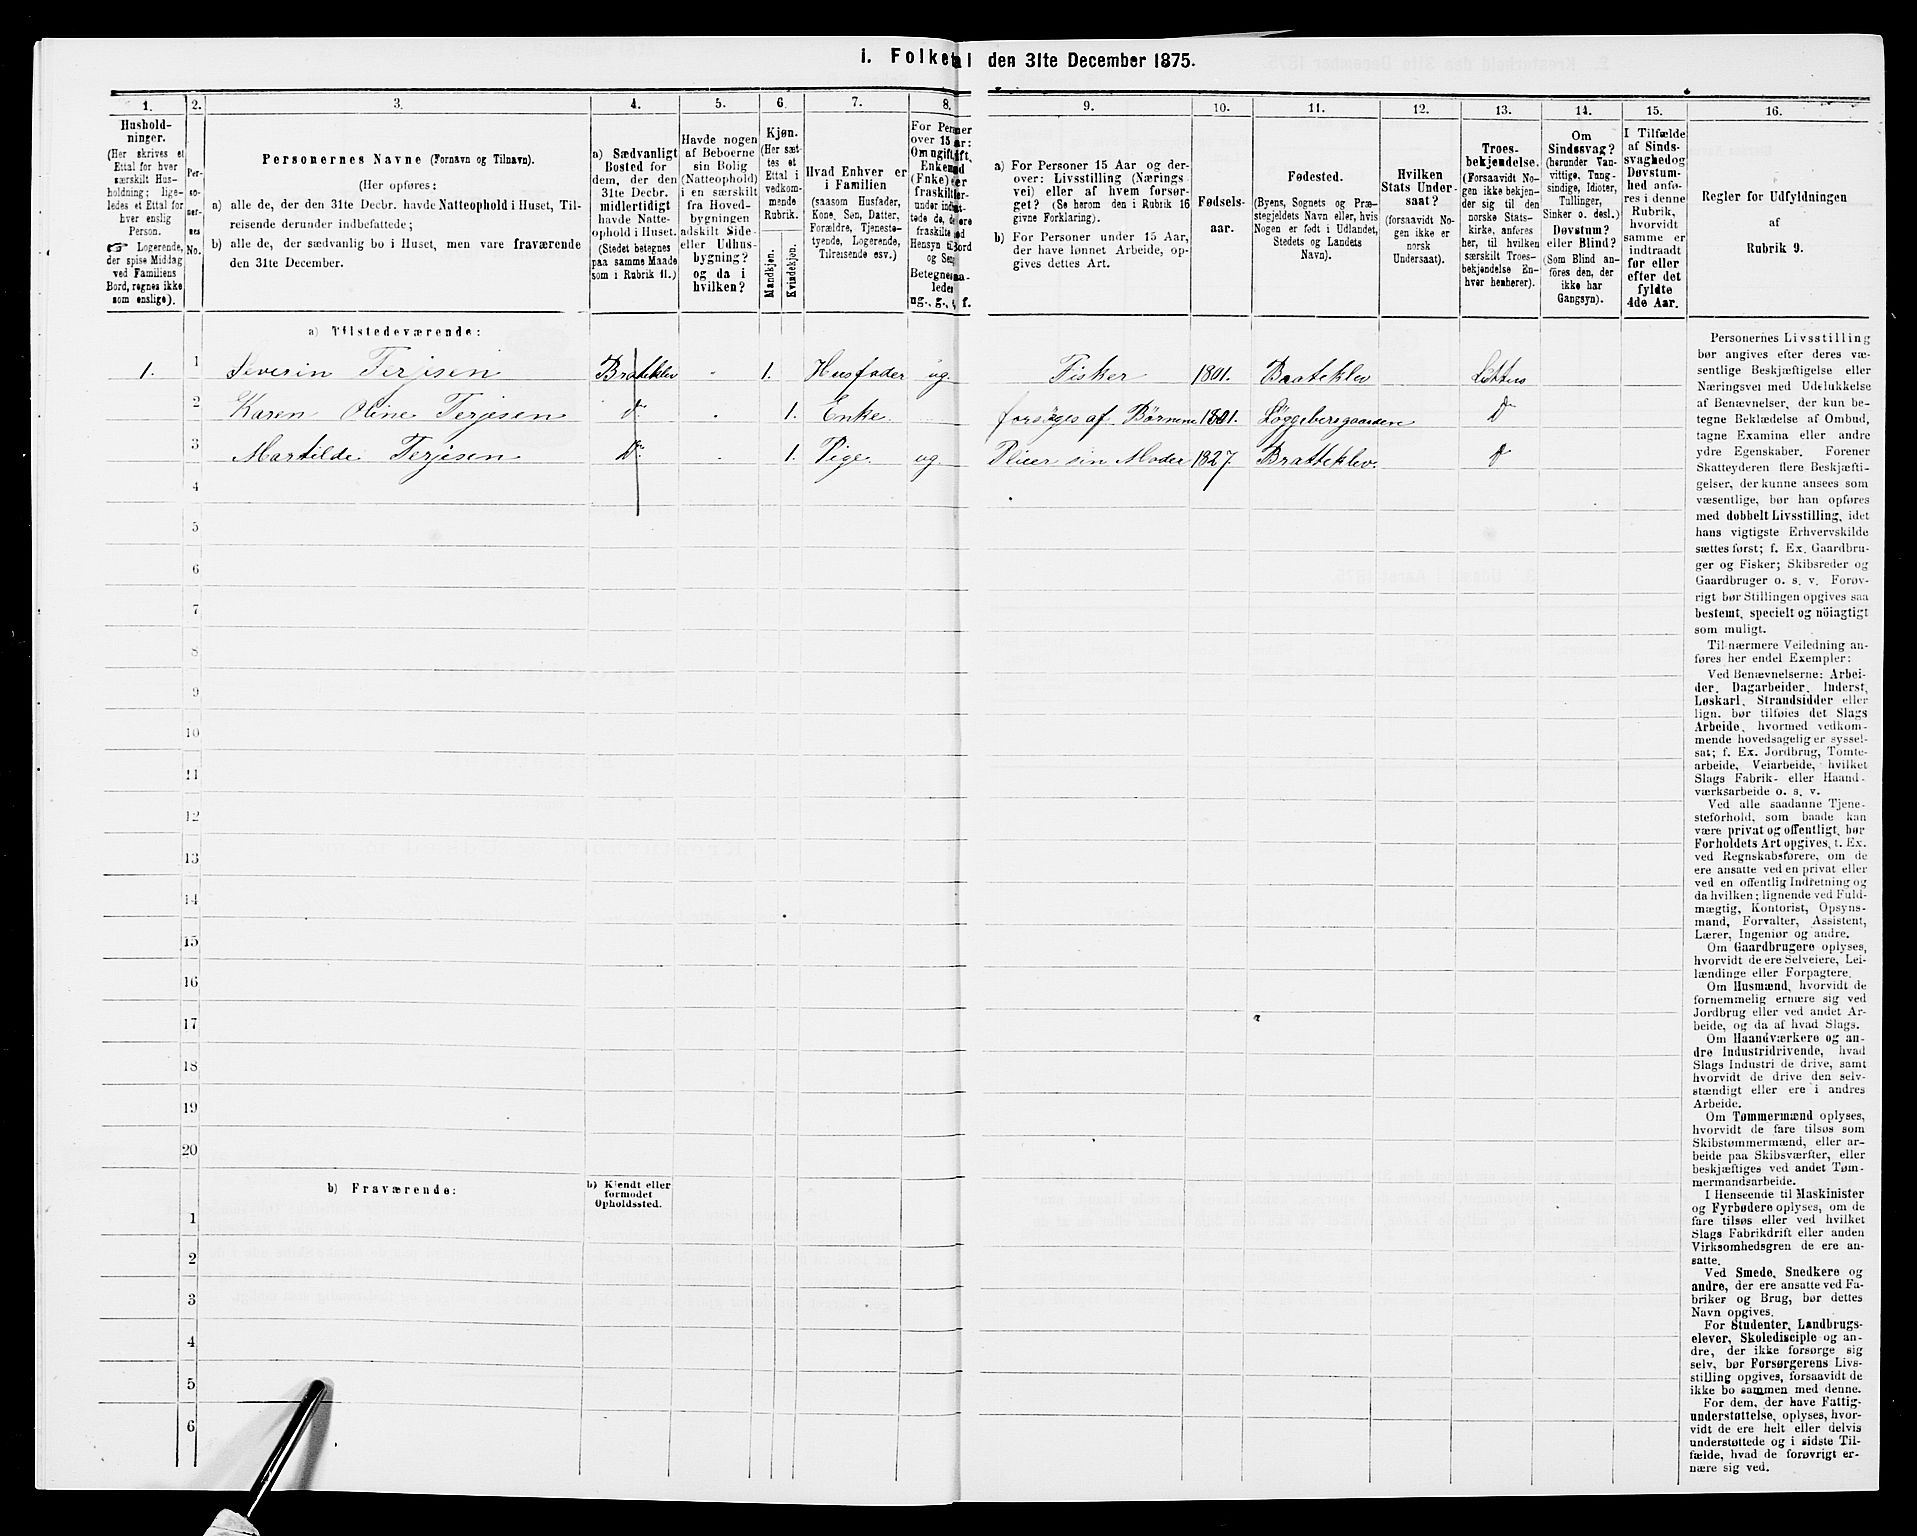 i. Folketal den 31te December 1875.
1. 2. 3. 4. 5. 6. 7. 8. 9. 10. 11. 12. 13. 14. 15. 16.
Hushold-
ninger.
(Her skrives et
Ettal for hver
særskilt Hus-
holdning; lige-
ledes et Ettal for
hver enslig
Person.
☞ Logerende,
der spise Middag
ved Familiens
Bord, regnes ikke
som enslige).
Per-
so-
ner-
nes
No.
Personernes Navne (Fornavn og Tilnavn).
(Her opføres:
a) alle de, der den 31te Decbr. havde Natteophold i Huset, Til-
reisende derunder indbefattede;
b) alle de, der sædvanlig bo i Huset, men vare fraværende
den 31te December.
a) Sædvanligt
Bosted for
dem, der den
31te Decbr.
midlertidigt
havde Natte-
ophold i Huset.
(Stedet betegnes
paa samme Maade
som i Rubrik 11.)
Havde nogen
af Beboerne
sin Bolig
(Natteophold)
i en særskilt
fra Hoved-
bygningen
adskilt Side-
eller Udhus-
bygning?
og da i
hvilken?
Kjøn.
(Her sæt-
tes et
Ettal i
vedkom-
mende
Rubrik.
Mandkjøn.
Kvindekjøn.
Hvad Enhver er
i Familien
(saasom Husfader,
Kone, Søn, Datter,
Forældre, Tjenestø-
tyende, Logerende,
Tilreisende osv.)
a) For Personer 15 Aar og der-
over: Livsstilling (Nærings-
vei) eller af hvem forsør-
get? (Se herom den i Rubrik 16
givne Forklaring).
b) For Personer under 15 Aar,
der have lønnet Arbeide, op-
gives dettes Art.
Fødsels-
aar.
Fødested.
(Byens, Sognets og Præ-
stegjeldets Navn eller, hvis
Nogen er født i Udlandet,
Stedets og Landets
Navn).
Hvilken
Stats Under-
saat?
(forsaavidt No-
gen ikke er
norsk
Undersaat).
Troes-
bekjendelse.
(Forsaavidt No-
gen ikke bekjen-
der sig til den
norske Stats-
kirke, anføres
her, til hvilken
særskilt Troes-
bekjendelse En-
hver henhører).
Om
Sindssvag?
(herunder Van-
vittige, Tung-
sindige, Idioter,
Tullinger,
Sinker o. desl.)
Døvstum?
eller Blind?
(Som Blind an-
føres den, der
ikke har
Gangsyn).
I Tilfælde
af Sinds-
svaghed og
Døvstum-
hed anfø-
res i denne
Rubrik,
hvorvidt
samme er
indtraadt
før eller
efter det
fyldte
4de Aar.
Regler for Udfyldningen
af
Rubrik 9.
a) Tilstedeværende:
1. 1 Severin Terjesen Bratteklev 1. Husfader ug. Fisker 1801. Bratteklev
2 Karen Oline Terjesen Do 1. Enke forsøges af Børnene 1801. Løggebersgaardene Do
3 Martilde Terjesen Do 1. Pige ug. Pleier sin Moder 1827. Bratteklev. Do
4
5
6
7
8
9
10
11
12
13
14
15
16
17
18
19
20
b) Fraværende:
b) Kjendt eller
formodet
Opholdssted.
1
2
3
4
5
6
Personernes Livsstilling
bør angives efter deres væ-
sentlige Beskjæftigelse eller
Næringsvei med Udelukkelse
af Benævnelser, der kun be-
tegne Beklædelse af Ombud,
tagne Examina eller andre
ydre Egenskaber. Forener
Skatteyderen flere Beskjæfti-
gelser, der kunne ansees som
væsentlige, bør han opføres
med dobbelt Livsstilling, idet
hans vigtigste Erhvervskilde
sættes først; f. Ex. Gaardbru-
ger og Fisker; Skibsreder og
Gaardbruger o. s. v. Forøv-
rigt bør Stillingen opgives saa
bestemt, specielt og nöiagtigt
som muligt.
Til nærmere Veiledning an-
føres her endel Exempler:
Ved Benævnelserne: Arbei-
der, Dagarbeider, Inderst,
Løskarl, Strandsidder eller
lign. bør tilføies det Slags
Arbeide, hvormed vedkom-
mende hovedsagelig er syssel-
sat; f. Ex. Jordbrug, Tomte-
arbeide, Veiarbeide, hvilket
Slags Fabrik- eller Haand-
værksarbeide o. s. v.
Ved alle saadanne Tjene-
steforhold, som baade kan
være privat og offentligt, bør
Forholdets Art opgives, f. Ex.
ved Regnskabsførere, om de
ere ansatte ved en privat eller
ved en offentlig Indretning og
da hvilken; lignende ved Fuld-
mægtig, Kontorist, Opsyns-
mand, Forvalter, Assistent,
Lærer, Ingeniør og andre.
Om Gaardbrugere oplyses,
hvorvidt de ere Selveiere, Lei-
lændinge eller Forpagtere.
Om Husmænd, hvorvidt de
fornemmelig ernære sig ved
Jordbrug eller ved andet Ar-
beide, og da af hvad Slags.
Om Haandværkere og an-
dre Industridrivende, hvad
Slags Industri de drive, samt
hvorvidt de drive den selv-
stændigt eller ere i andres
Arbeide.
Om Tømmermænd oplyses,
hvorvidt de fare tilsøs som
Skibstømmermænd, eller ar-
beide paa Skibsværfter, eller
beskjæftiges ved andet Tøm-
mermandsarbeide.
I Henseende til Maskinister
og Fyrbødere oplyses, om de
fare tilsøs eller ved hvilket
Slags Fabrikdrift eller anden
Virksomhedsgren de ere an-
satte.
Ved Smede, Snedkere og
andre, der ere ansatte ved Fa-
briker og Brug, bør dettes
Navn opgives.
For Studenter, Landbrugs-
elever, Skoledisciple og an-
dre, der ikke forsørge sig
selv, bør Forsørgerens Livs-
stilling opgives, forsaavidt de
ikke bo sammen med denne.
For dem, der have Fattig-
understøttelse, oplyses, hvor-
vidt de ere helt eller delvis
understøttede og i sidste Til-
fælde, hvad de forøvrigt er-
nære sig ved.